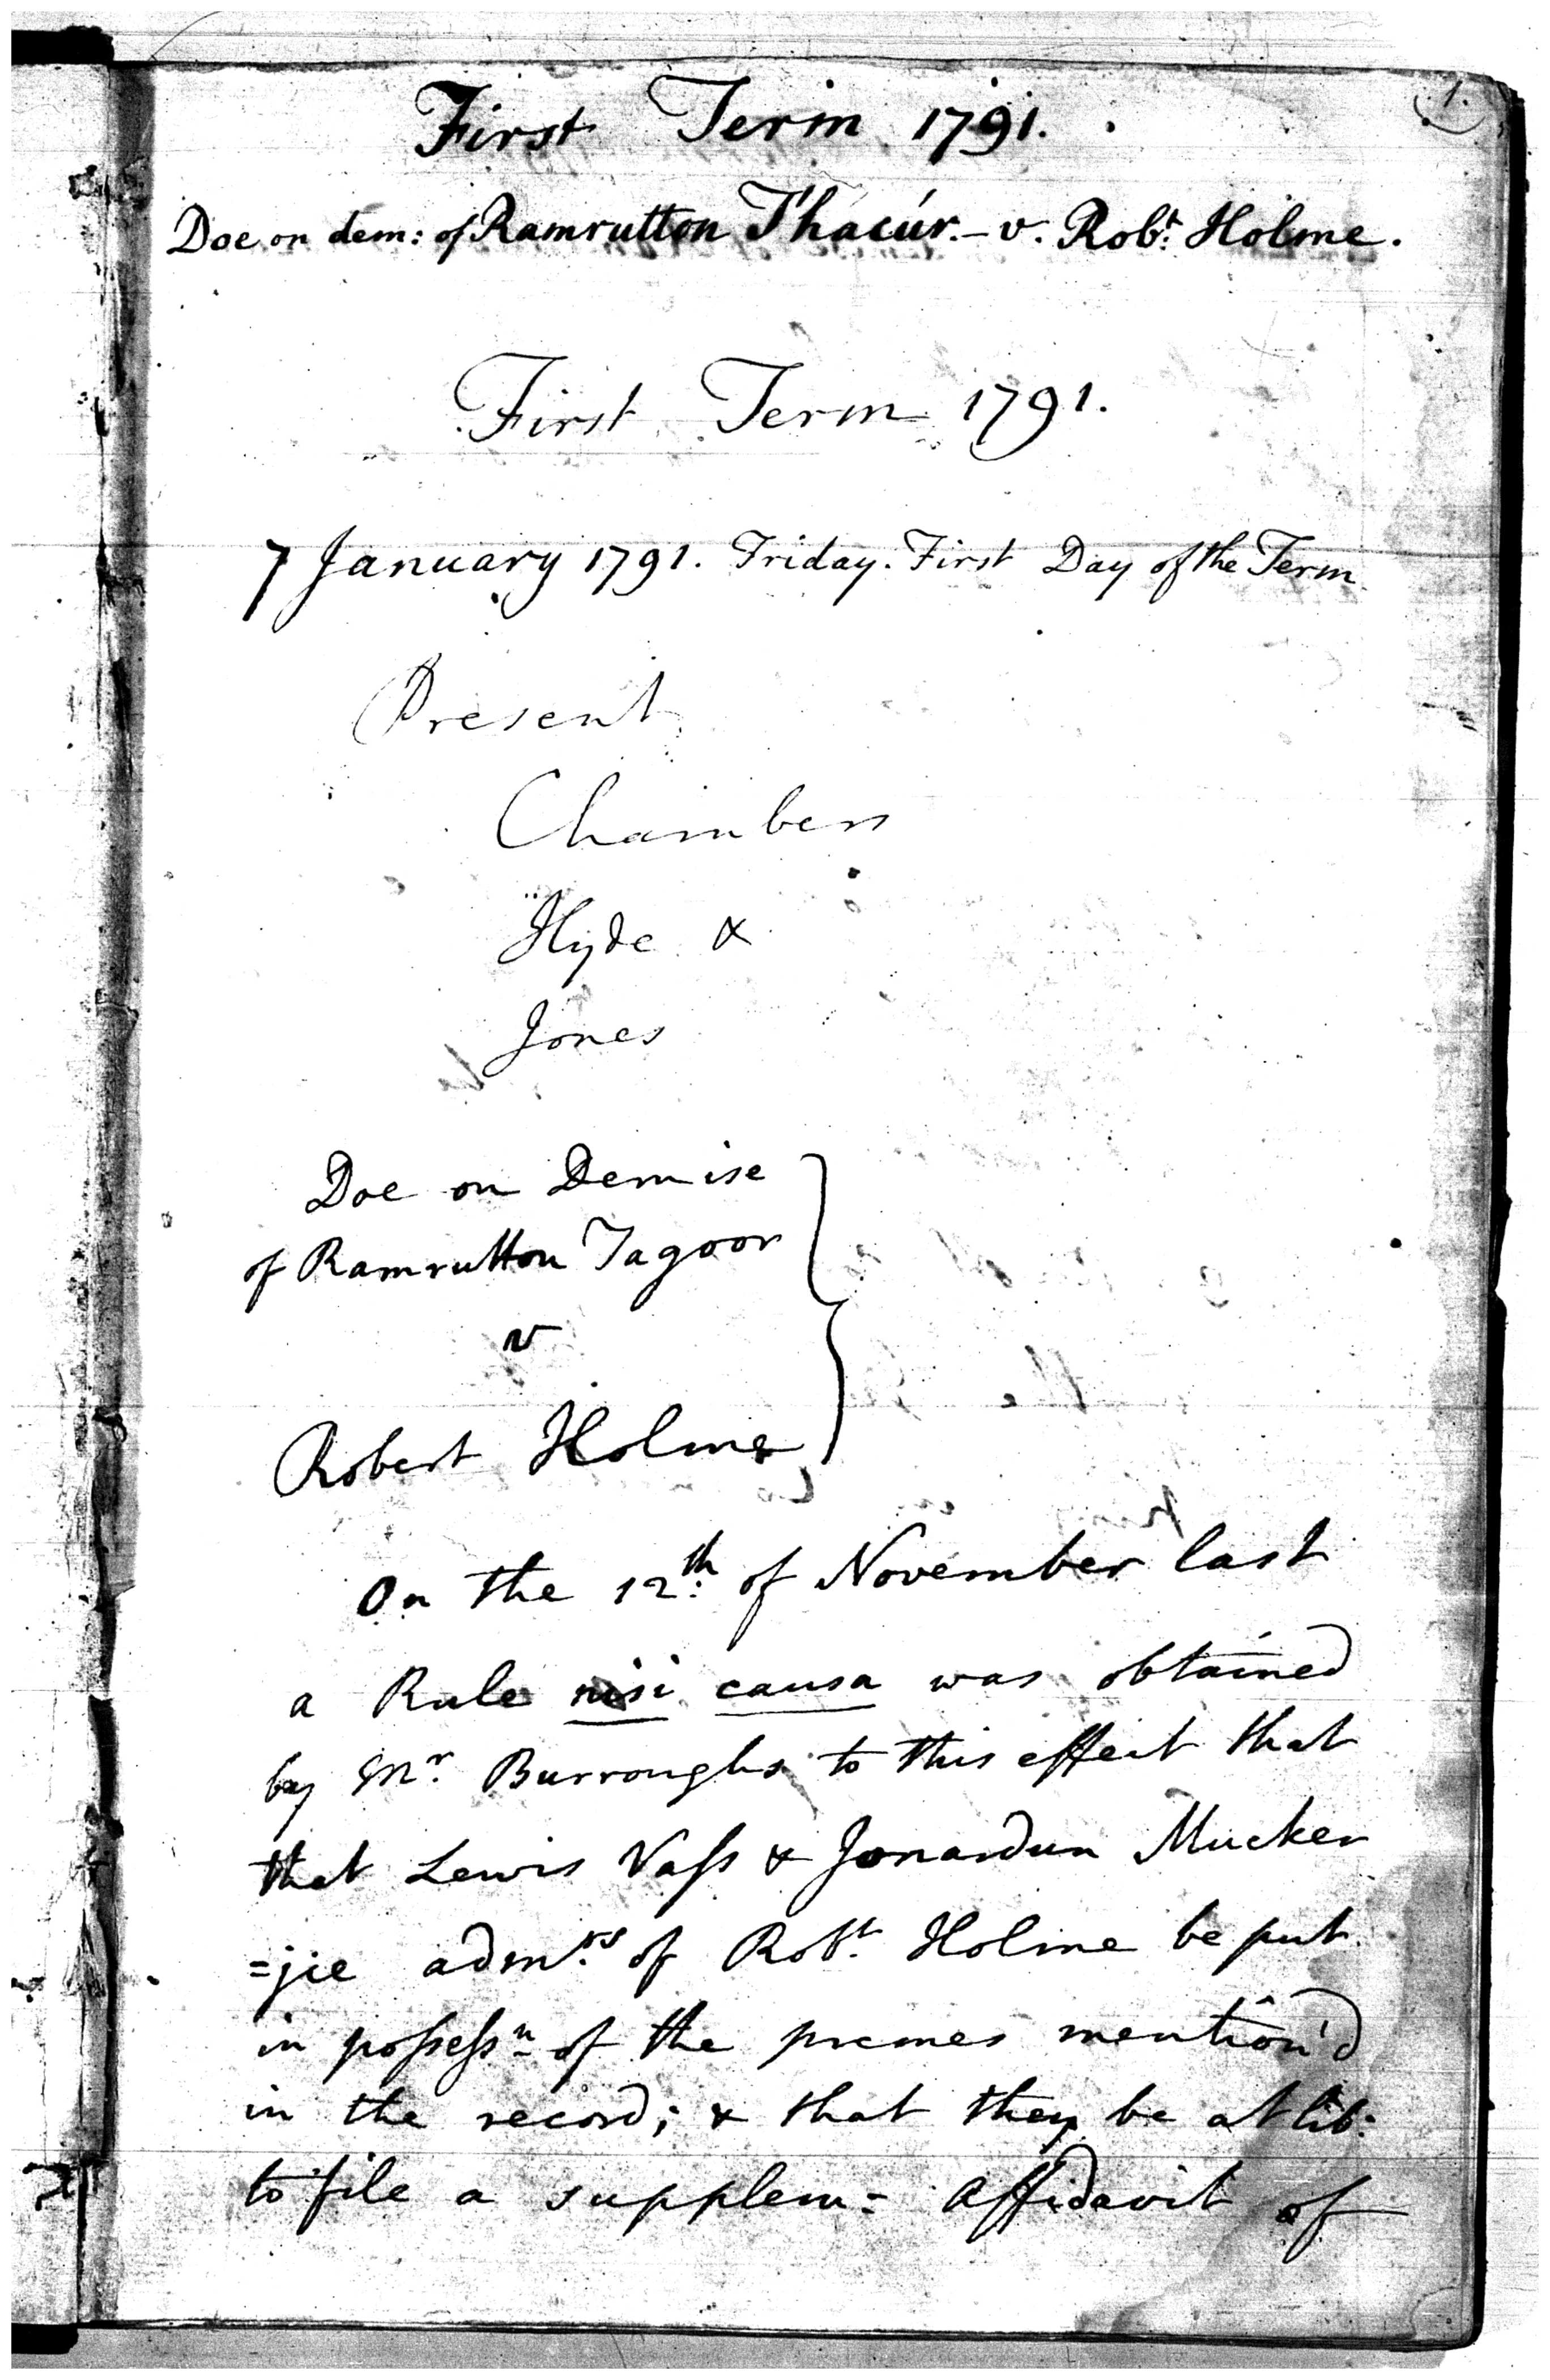 1.
First Term 1791.
Doe on dem: of Ramrutton Thacúr. - v. Robt. Holme.
First Term 1791.
7 January 1791. Friday. First Day of the Term
Present
Chambers
Hyde &
Jones
Doe on Demise
of Ramrutton Tagoor
v
Robert Holme
On the 12th. of November last
a Rule nisi causa was obtained
by Mr. Burroughs to this effect that
that Lewis Vaſs & Jonardun Mucker
=jie admrs. of Robt. Holme be put
in poſseſsn of the premes mention'd
in the record; & that they be at lib:
to file a supplem= Affidavit of